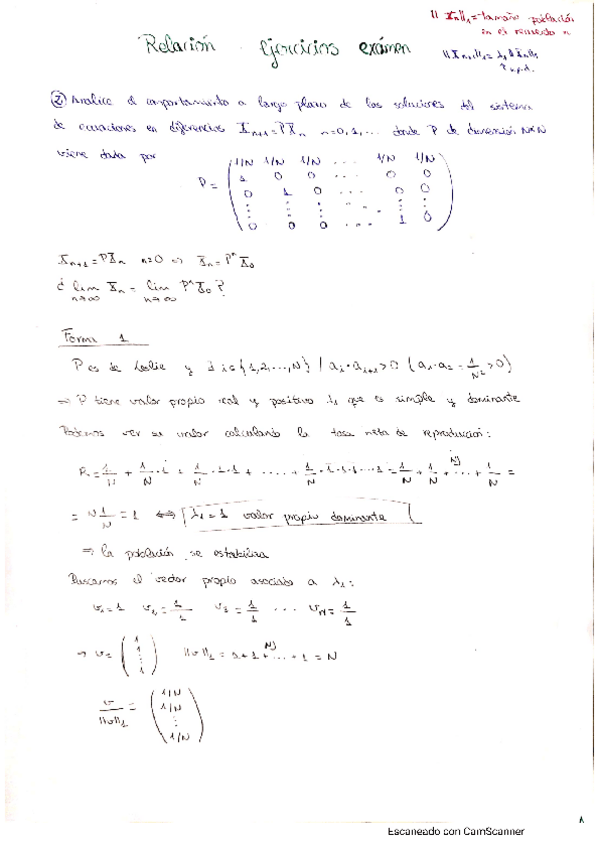 || X_n ||_1 = tamaño población
en el recuento n
Relación ejercicios exámen
② Analice el comportamiento a largo plazo de las soluciones del sistema
de ecuaciones en diferencias X_{n+1} = P X_n n=0,1,... donde P de dimensión N×N
viene dada por
P = ( 1/N 1/N 1/N ... 1/N 1/N
1 0 0 ... 0 0
0 1 0 ... 0 0
⋮ ⋮ ⋮ ... ⋮ ⋮
0 0 0 ... 1 0 )
X_{n+1} = P X_n n≥0 ⇒ X_n = P^n X_0
¿ lim_{n→∞} X_n = lim_{n→∞} P^n X_0 ?
Forma 1
P es de Leslie y ∃ i ∈ {1,2,...,N} / a_i · a_{i+1} > 0 ( a_1 · a_2 = 1/N² > 0 )
⇒ P tiene valor propio real y positivo λ_1 que es simple y dominante
Podemos ver su valor calculando la tasa neta de reproducción:
R = 1/N + 1/N · 1 + 1/N · 1 · 1 + ..... + 1/N · 1 · 1 · 1 ··· 1 = 1/N + 1/N + ... + 1/N =
= N 1/N = 1 ⟺ λ_1 = 1 valor propio dominante
⇒ la población se estabiliza
Buscamos el vector propio asociado a λ_1:
v_1 = 1 v_2 = 1/1 v_3 = 1/1 ... v_N = 1/1
→ v = ( 1 1 ⋮ 1 ) ||v||_1 = 1 + 1 + ... + 1 = N
v/||v||_1 = ( 1/N 1/N ⋮ 1/N )
Escaneado con CamScanner